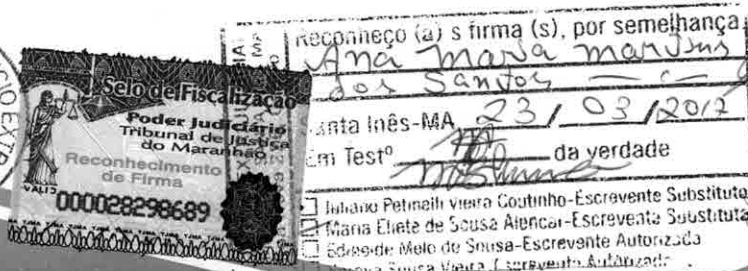 CIO EXTR
Selo de Fiscalização
Poder Judiciário
Tribunal de Justiça
do Maranhão
Reconhecimento
de Firma
VALID
000028298689
Reconheço (a) s firma (s), por semelhança
Ana Maria Martins
dos Santos
Santa Inês-MA 23/03/2012
Em Testº da verdade
Juliano Petinelli Vieira Coutinho-Escrevente Substituto
Maria Eliete de Sousa Alencar-Escrevente Substituta
de Melo de Sousa-Escrevente Autorizada
Sousa Vieira Escrevente Autorizada